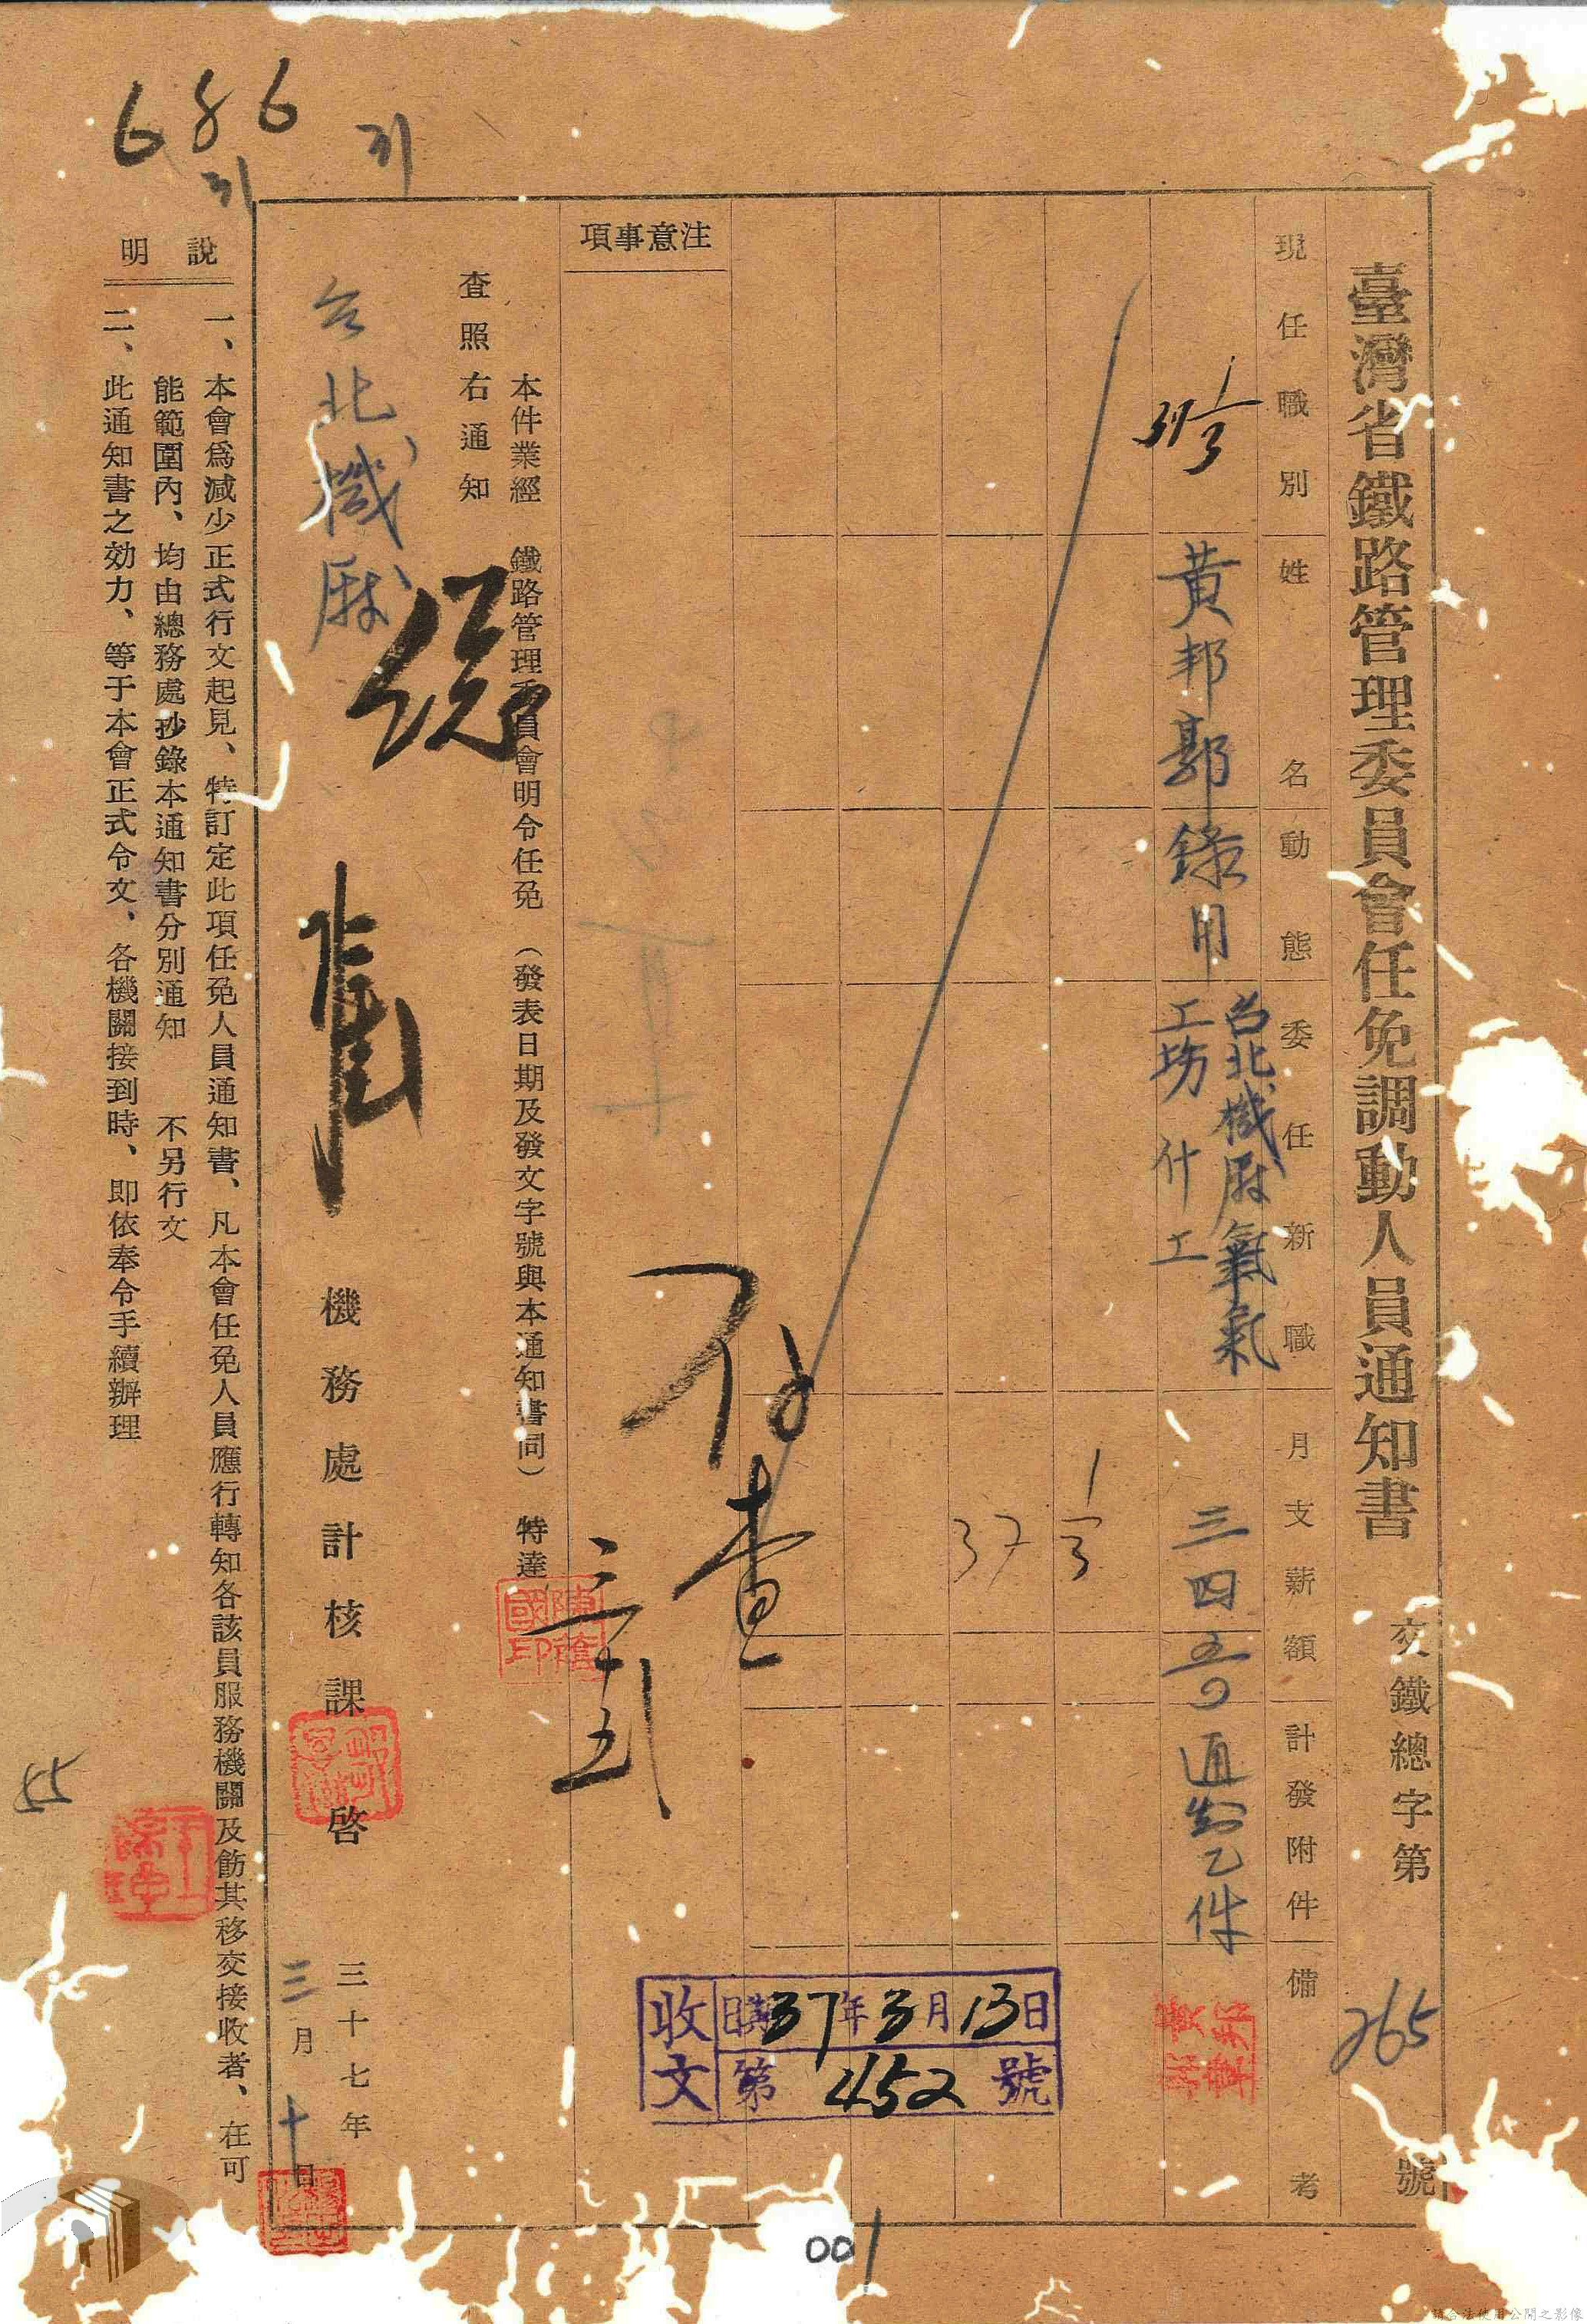 臺灣省鐵路管理委員會任免調動人員通知書
交鐵總字第265號
現任職別
姓名
動態
委任新職
月支薪額
計發附件
備考
37 1/3
黃邦郭
錄用
台北機厰氧氣
工場什工
三四五〇
通知乙件
1/3
37
注意事項
存查
三十五
本件業經 鐵路管理委員會明令任免 (發表日期及發文字號與本通知書同) 特達
查照右通知
台北機厰
機務處計核課啓
三十七年
三月十日
說明
一、本會爲減少正式行文起見、特訂定此項任免人員通知書、凡本會任免人員應行轉知各該員服務機關及飭其移交接收者、在可
能範圍內、均由總務處抄錄本通知書分別通知 不另行文
二、此通知書之効力、等于本會正式令文、各機關接到時、即依奉令手續辦理
收文
日期37年3月13日
第452號
686
55
001